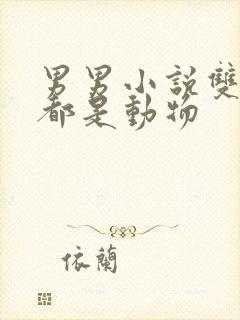 男男小說雙
都是動物
依蘭